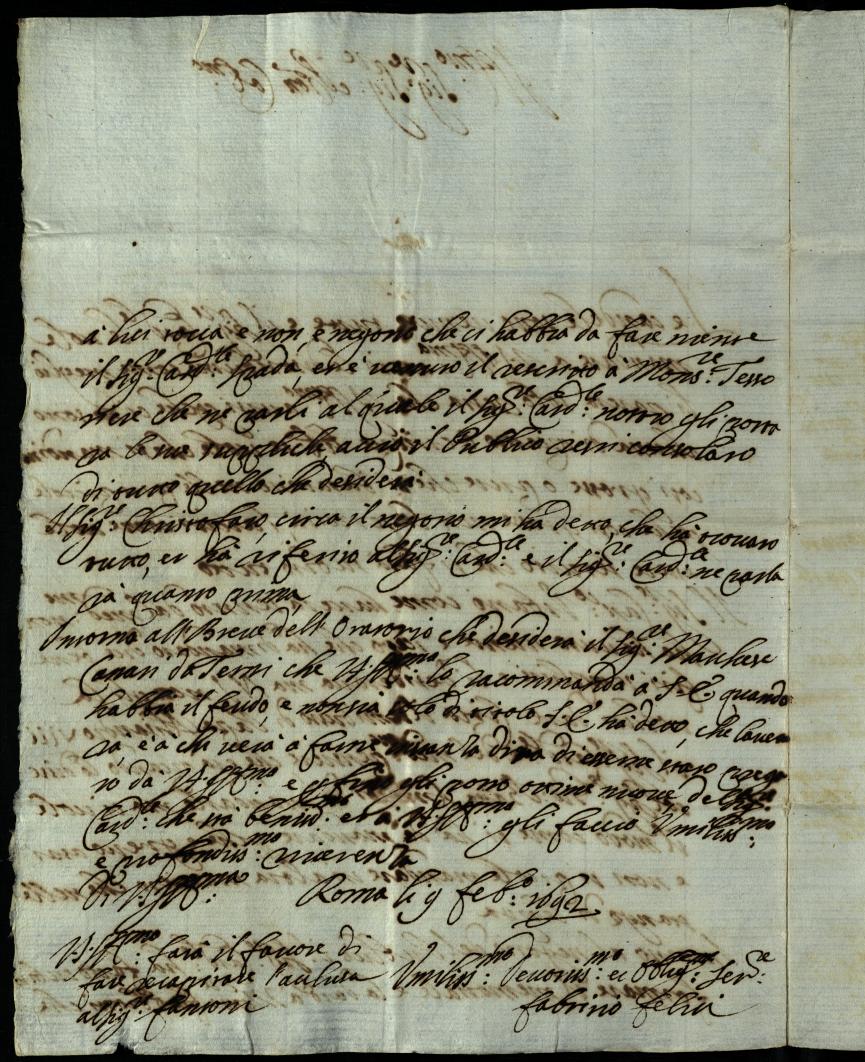 à lui tocca, e non, è negotio che ci habbia da fare niente
il Sig.re Card.le Spada, et è venuto il rescritto à Mons.re Teso
riere che ne parli al quale il Sig.re Card.le nostro gli porta
rà le sue suppliche, acciò il Publico resti consolato
di tutto quello che desidera
Il Sig.re Christofaro, circa il negotio mi ha detto, che hà trovato
tutto, et hà riferito al Sig.re Card.le e il Sig.re Card.le ne parla
rà quanto prima,
Intorno all Breve dell Oratorio che desidera il Sig.re Marchese
Canari da Terni che V.S. Ill.ma lo racommanda à S.E. quando
habbia il feudo, e non sia solo di titolo S.E. hà detto, che lave
rà, e à chi verà à farne instanza dirà di esserne stato prega
to da V.S. Ill.ma e gli porto ottime nuove del Sig.re
Card.le che stà beniss.mo et à V.S. Ill.ma gli faccio Umiliss.ma
e profondiss.ma riverenza
Di V.S. Ill.ma Roma li 9 feb.o 1692
V.S. Ill.ma farà il favore di
fare recapitare l'acclusa
al Sig.re Fantoni
Umiliss.mo Devotiss.mo et Oblig.mo Ser.re
Fabritio Felici